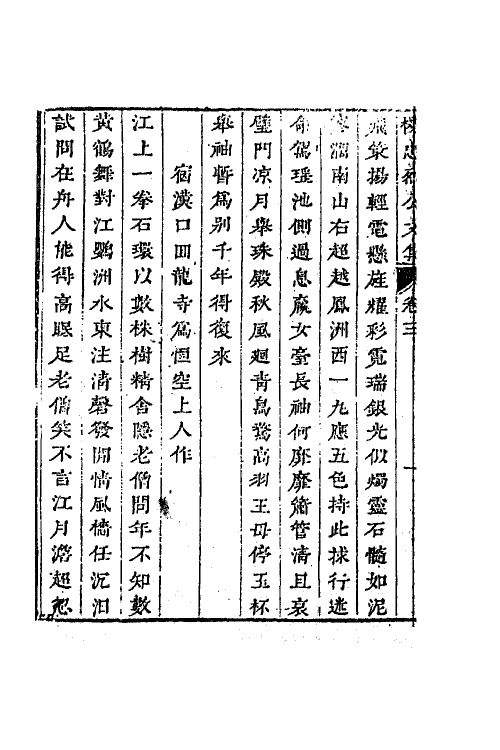 文集 卷三
飛策揚輕電懸旌耀彩霓瑞銀光似燭靈石髓如泥
澗南山右超越鳳洲西一九應五色持此採行迷
命駕瑤池側過息嬴女臺長袖何靡靡簫管清且哀
璧門凉月舉珠殿秋風廻青鳥驁高羽王母停玉杯
舉袖暫爲别千年得復來
宿漢口回龍寺爲恒空上人作
江上一拳石環以數株樹精舍隱老僧問年不知數
黃鶴舞對江鸚洲水東注清磬發閒情風檣任沉汨
試問在舟人能得高眠足老僧笑不言江月澹超忽